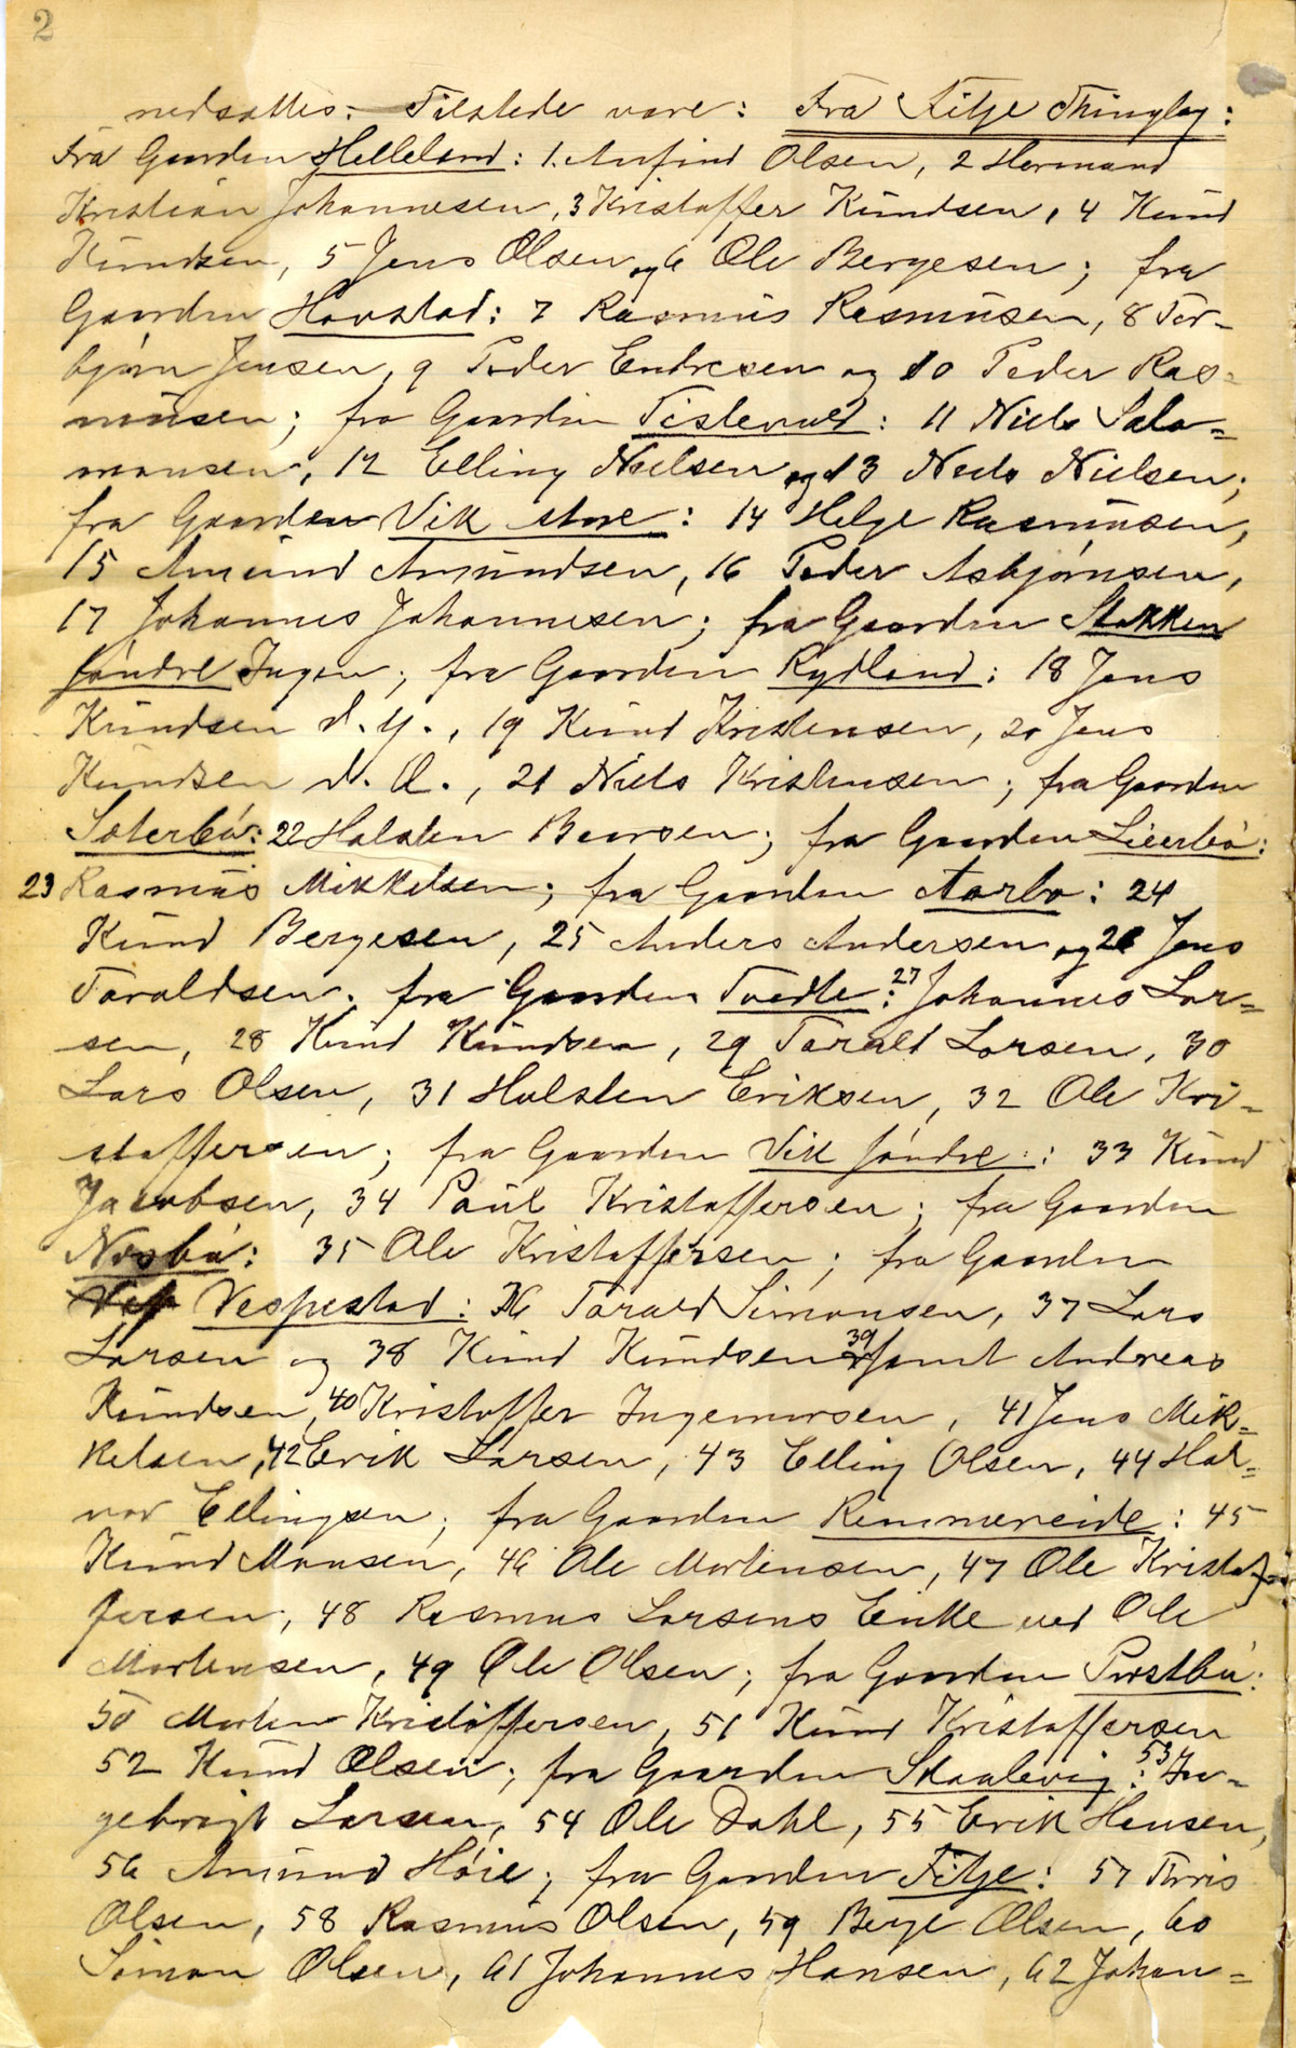 2
nedsattes. Tilstede vare: Fra Fitje Thinglag:
Fra Gaarden Helleland: 1. Anfind Olsen, 2 Hermand
Kristian Johannesen, 3 Kristoffer Knudsen, 4 Knud
Knudsen, 5 Jens Olsen og 6 Ole Bergesen; fra
Gaarden Hovstad: 7 Rasmus Rasmusen, 8 Tor-
bjørn Jensen, 9 Peder Endresen og 10 Peder Ras-
musen; fra Gaarden 11 Niels Salo-
monsen, 12 Elling Nielsen og 13 Niels Nielsen;
fra Gaarden Vik store: 14 Helge Rasmusen,
15 Amund Amundsen, 16 Peder Asbjørnsen,
17 Johannes Johannesen; fra Gaarden Stokken
søndre Ingen; fra Gaarden Rydland: 18 Jens
Knudsen d. y., 19 Knud Kristensen, 20 Jens
Knudsen d. Æ., 21 Niels Kristensen; fra Gaarden
Sæterbø: 22 Halsten Baarsen; fra Gaarden
23 Rasmus Mikkelsen; fra Gaarden Aarbø: 24
Knud Bergesen, 25 Anders Andersen og 26 Jens
Taraldsen. fra Gaarden Tvedte: 27 Johannes Lar-
sen, 28 Knud Knudsen, 29 Tarald Larsen, 30
Lars Olsen, 31 Halsten Eriksen, 32 Ole Kri-
stoffersen; fra Gaarden Vik søndre: 33 Knud
Jacobsen, 34 Paul Kristoffersen; fra Gaarden
Næsbø: 35 Ole Kristoffersen; fra Gaarden
Vespestad: 36 Tarald Simonsen, 37 Lars
Larsen og 38 Knud Knudsen 39 samt Andreas
Knudsen, 40 Kristoffer Ingemorsen, 41 Jens Mik-
kelsen, 42 Erik Larsen, 43 Elling Olsen, 44 Hal-
vor Ellingsen; fra Gaarden Remmereide: 45
Knud Monsen, 46 Ole Mortensen, 47 Ole Kristof-
fersen, 48 Rasmus Larsens Enke ved Ole
Mortensen, 49 Ole Olsen; fra Gaarden Prestbø:
50 Morten Kristoffersen, 51 Knud Kristoffersen
52 Knud Olsen; fra Gaarden Skaalevig: 53 In-
gebrigt Larsen, 54 Ole Dahl, 55 Erik Hansen,
56 Amund Høie; fra Gaarden Fitje: 57 Thris
Olsen, 58 Rasmus Olsen, 59 Berge Olsen, 60
Simon Olsen, 61 Johannes Hansen, 62 Johan-